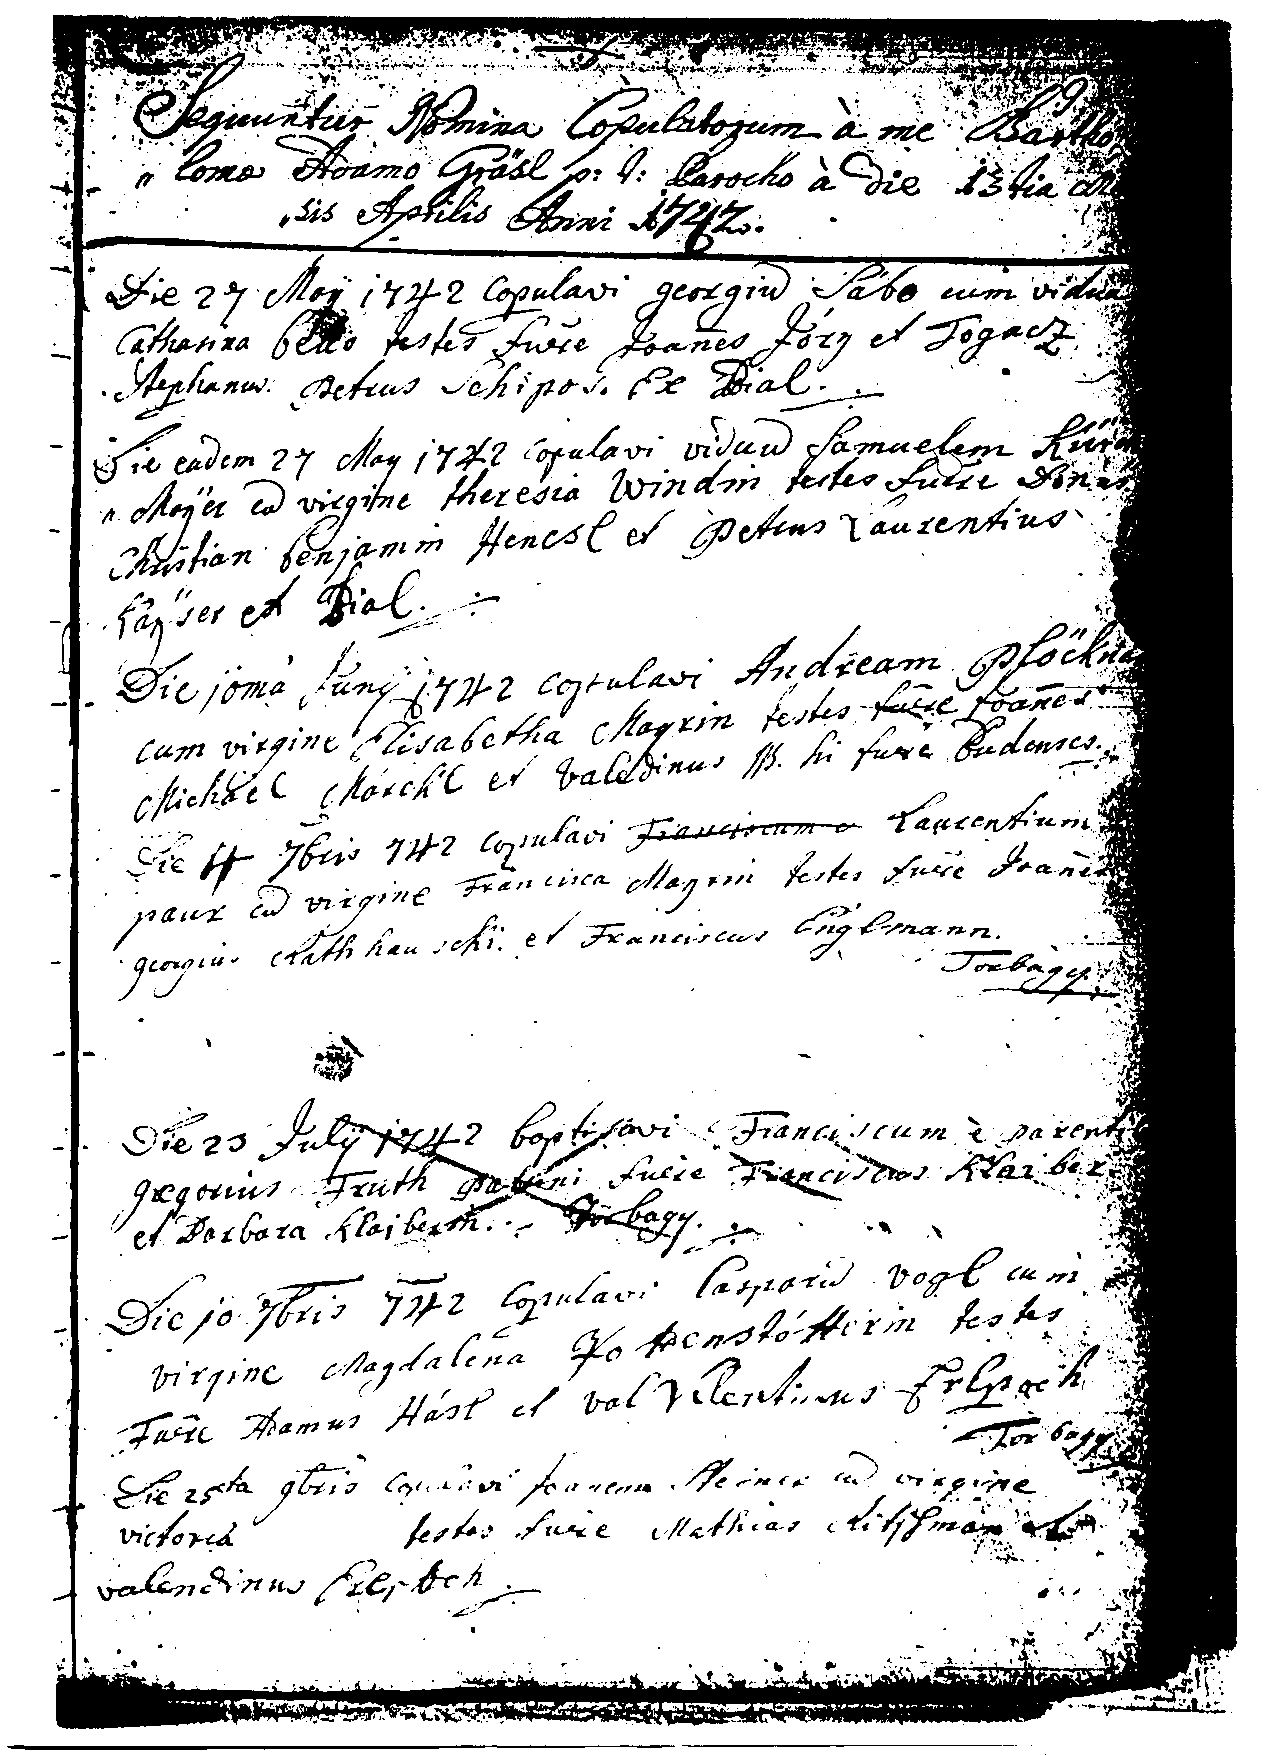 Sequuntur Nomina Copulatorum à me Bartho
"lomeo Adamo Gräsl p: t: Parocho à die 13tia
"sis Aprilis Anni 1742.
Die 27 Maÿ 1742 copulavi georgiū Sabo cum vidua
Catharina testes fuēre Joañes Jóry et Togacz
Stephanus. Petrus Schipos. Ex Bial.
Die eadem 27 May 1742 copulavi viduū Samuelem
" Maÿer cū virgine theresia Windin testes fuēre
Christian benjamin Hencsl et Petrus Laurentius
Kaÿser ex Bial.
Die 10ma Junÿ 1742 copulavi Andream
cum virgine Elisabetha Mayrin testes fuēre Joañes
Michäel Märckl et Valedinus W. hi fuēre Budenses.
Die 4 7bris 742 copulavi Franciscum Laurentium
paur cū virgine Francisca Mayrin testes fuēre Joañes
georgius Rathhauschi. et Franciscus Englmann.
Torbágy.
Die 23 Julÿ 1742 baptisavi Franciscum è parenti
gregorius Fruth patrini fuēre Franciscus Klaiber
et Barbara Klaiberin. Torbagy.
Die 10 7bris 742 copulavi Casparū Vogl cum
virgine Magdalena testes
Fuēre Adamus Hásl et
Torbagy
Die 25ta 9bris copulavi Joanem cū virgine
victoria testes fuēre Mathias et
valendinus